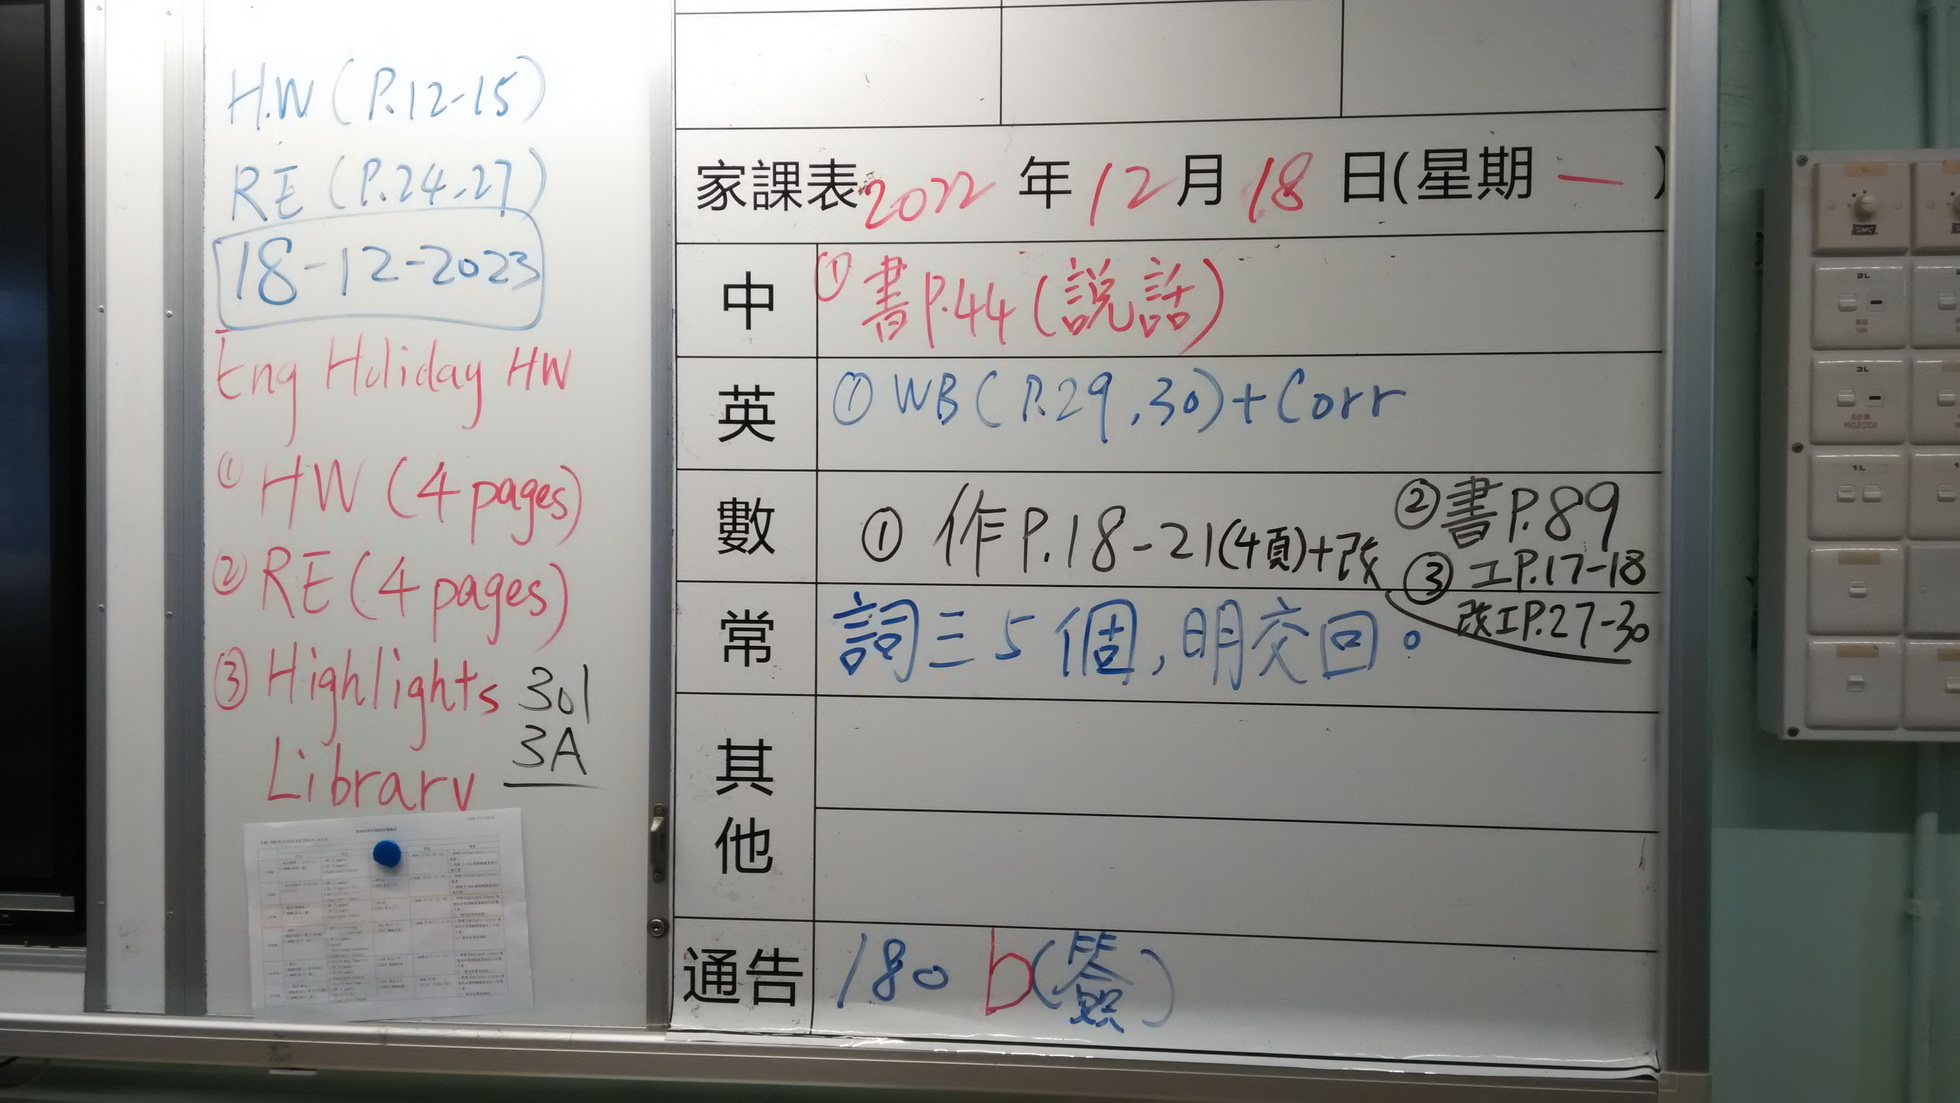 H.W (P.12-15)
RE (P.24,27)
18-12-2023
Eng Holiday HW
① HW (4 pages)
② RE (4 pages)
③ Highlights
Library
301
3A
家課表 2022 年 12 月 18 日(星期 一 )
中 ① 書P.44 (説話)
英 ① WB (P.29,30)+Corr
數 ① 作P.18-21(4頁)+改
② 書P.89
③ 工P.17-18
改工P.27-30
常 詞三5個,明交回。
其他
通告 180 b(簽)
PROJECTOR